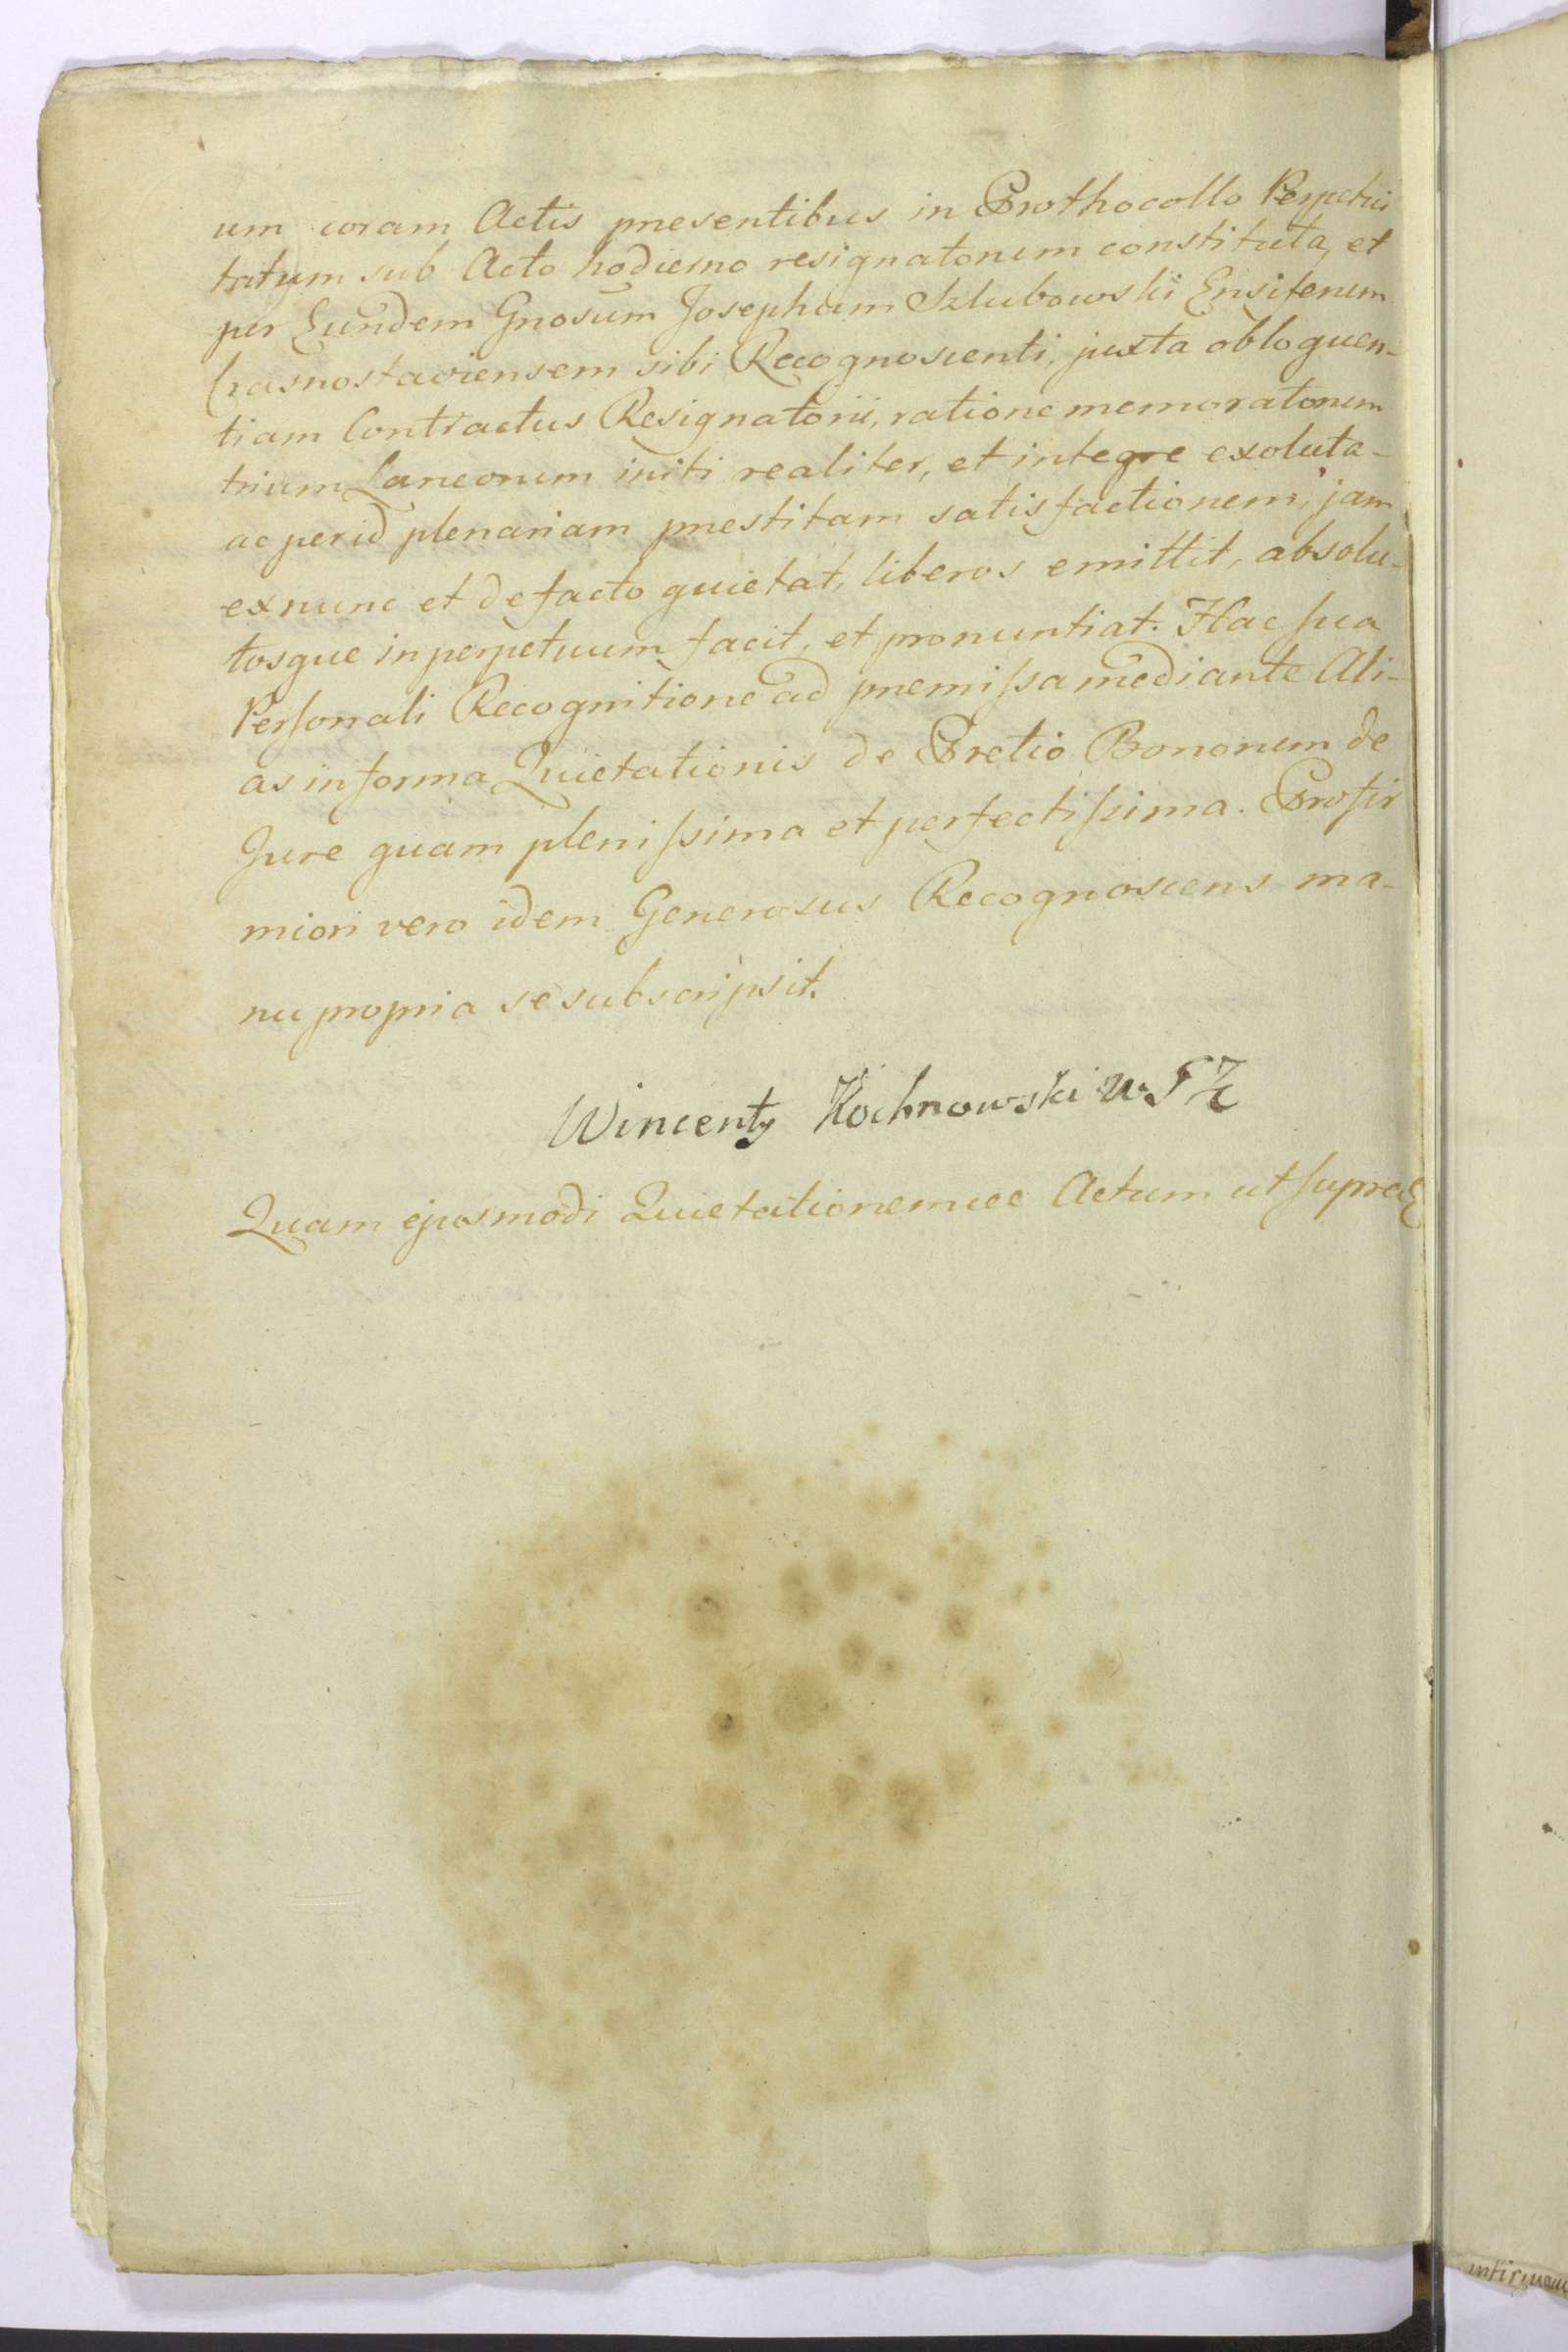 um coram Actis presentibus in Prothocollo Perpetui
tatum sub Acto hodierno resignatorum constituta, et
per Eundem Gnosum Josephum Szlubowski Ensiferum
Crasnostaviensem sibi Recognoscenti, juxta obloquen-
tiam Contractus Resignatorii, ratione memoratorum
trium Laneorum initi realiter, et integre exoluta-
ac per id plenariam prestitam satisfactionem, jam
ex nunc et de facto quietat, liberos emittit, absolu-
tosque in perpetuum facit, et pronuntiat. Hac sua
Personali Recognitione ad premissa mediante Ali-
as in forma Quietationis de Pretio Bonorum de
Jure quam plenissima et perfectissima. Profir
miori vero idem Generosus Recognoscens ma-
nu propria se subscripsit.
Wincenty Kochnowski
Quam ejusmodi Quietationem Actum ut supra